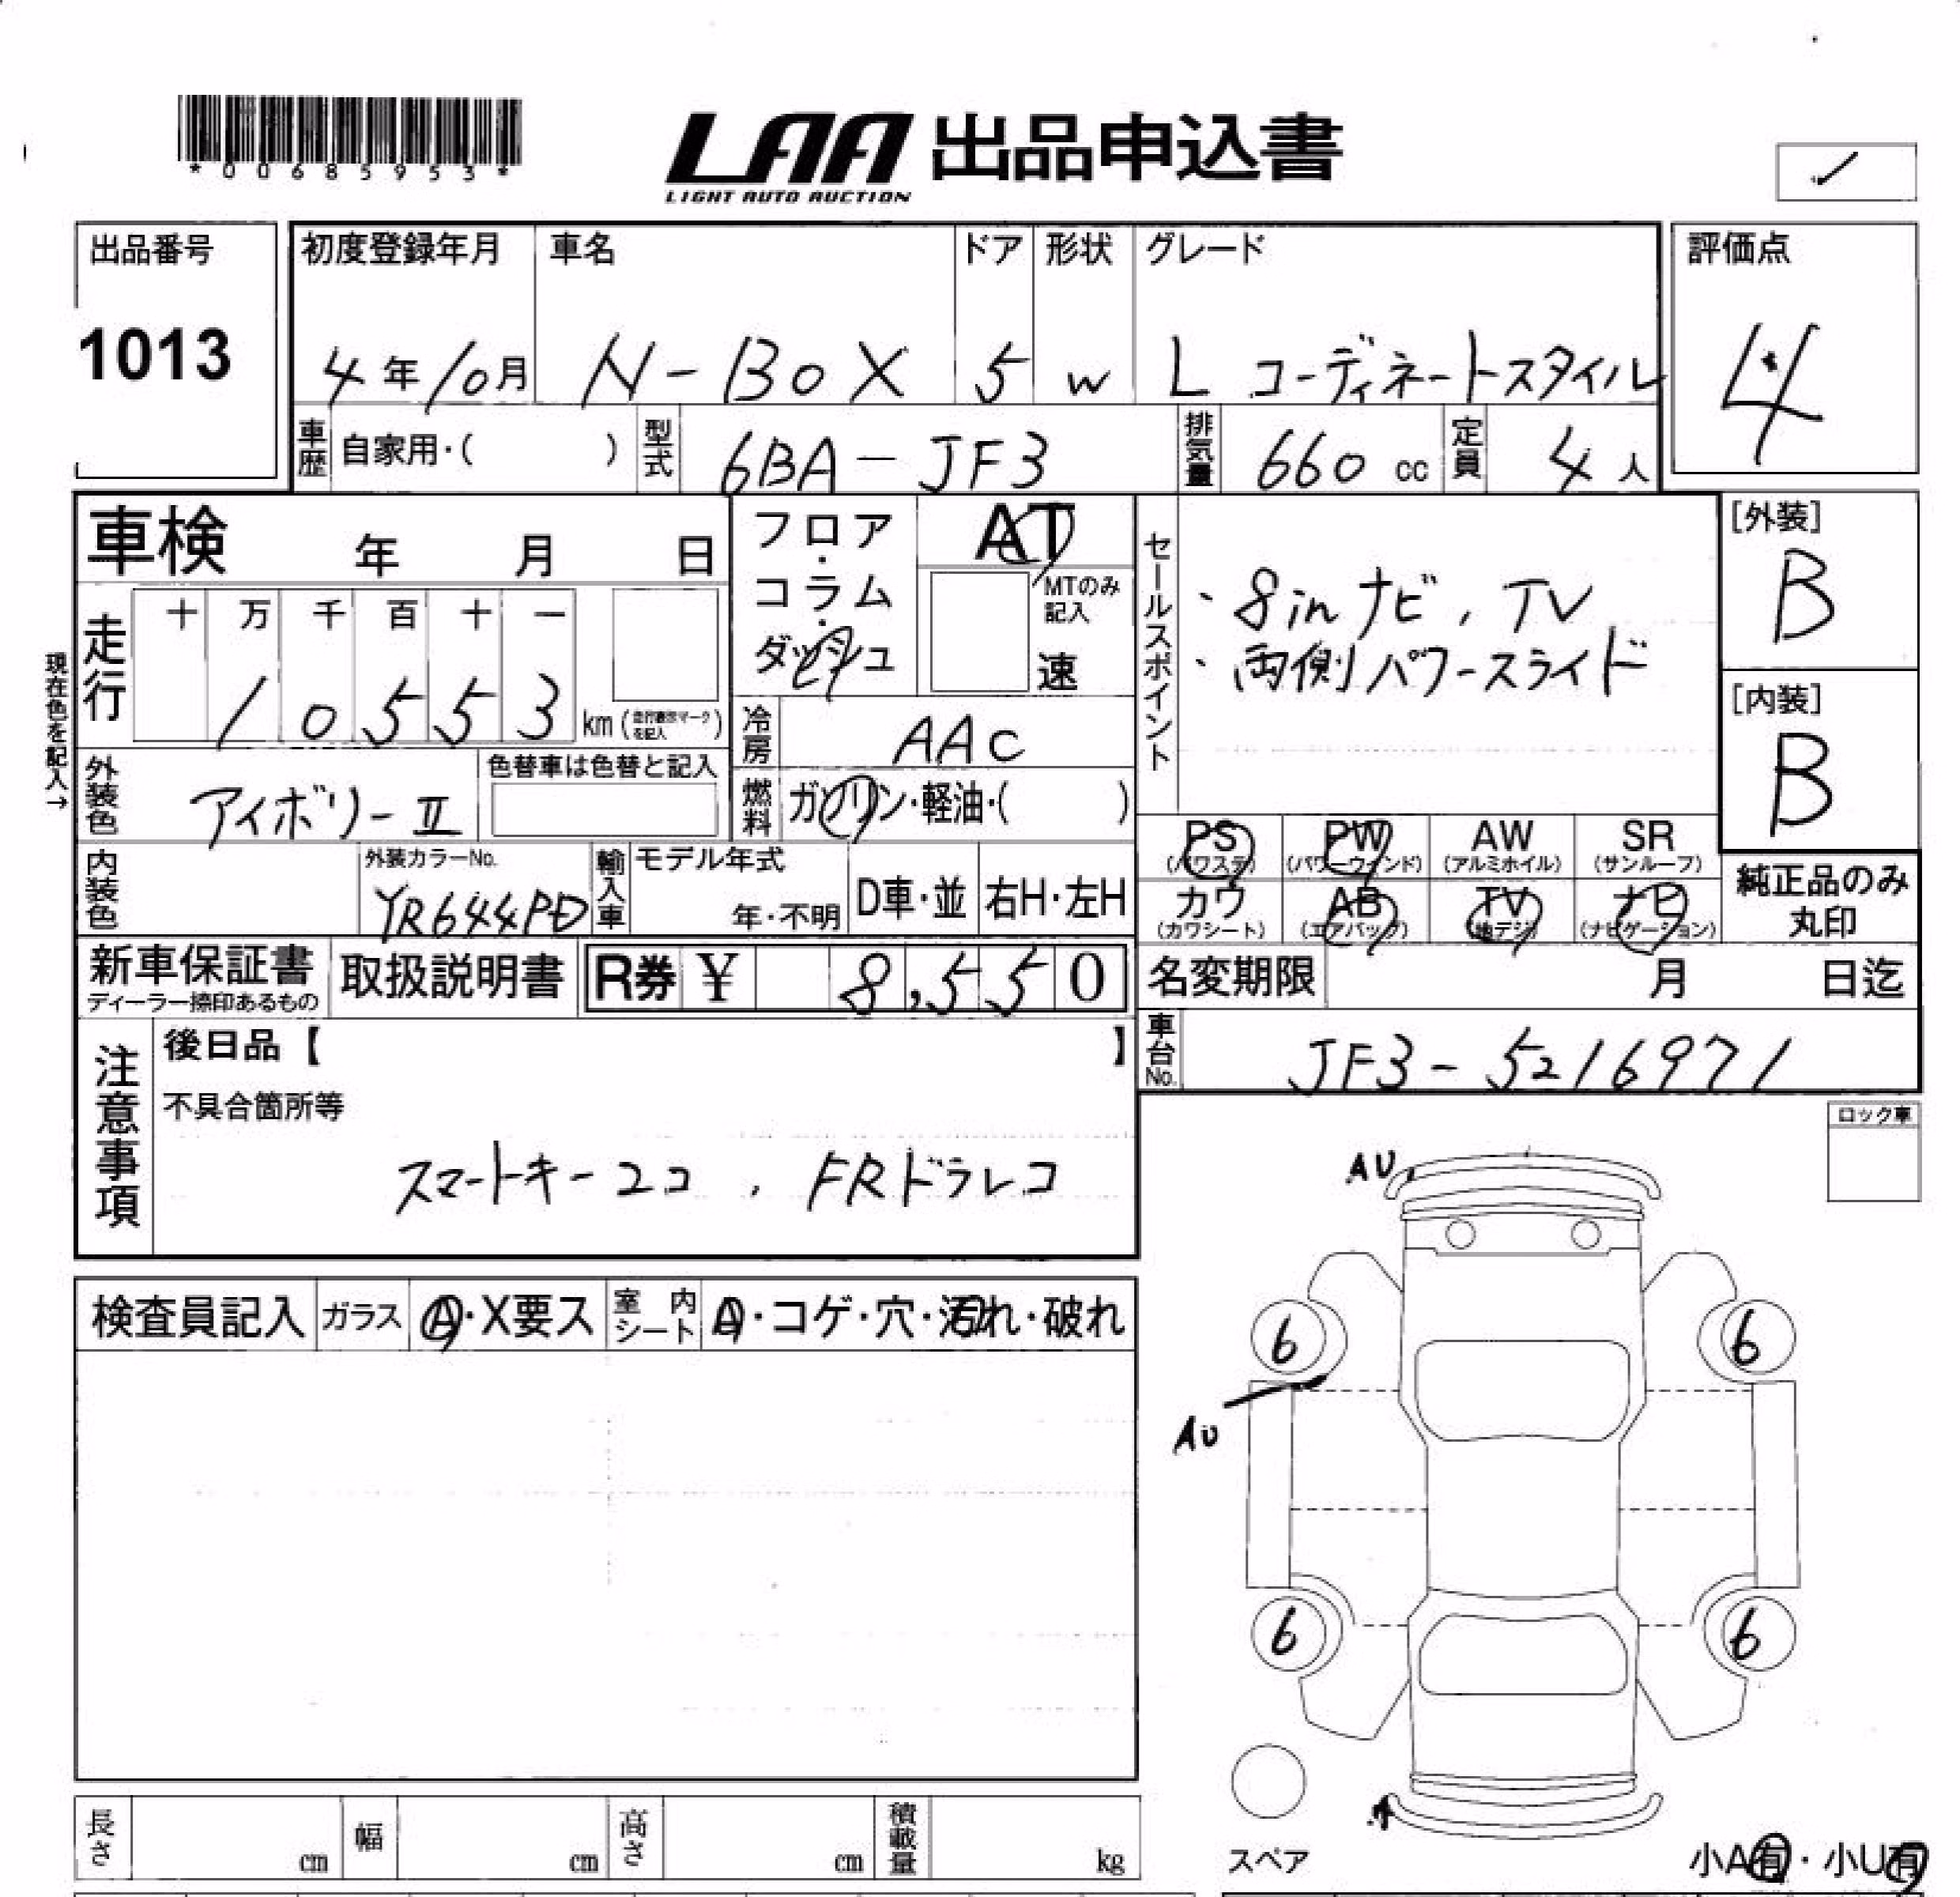 *00685953*
LAA 出品申込書
LIGHT AUTO AUCTION
出品番号
1013
初度登録年月 車名 ドア 形状 グレード
4年10月 N-BOX 5 W L コーディネートスタイル
評価点
4
車歴 自家用・( ) 型式 6BA-JF3 排気量 660 cc 定員 4人
車検 年 月 日
フロア・コラム・ダッシュ
AT
MTのみ記入
速
セールスポイント
・8inナビ, TV
・両側パワースライド
[外装]
B
[内装]
B
現在色を記入→
走行 十 万 千 百 十 一
10553 km (走行表示マークを記入)
冷房 AAC
外装色 アイボリーⅡ
色替車は色替と記入
燃料 ガソリン・軽油・( )
PS (パワステ) PW (パワーウィンド) AW (アルミホイル) SR (サンルーフ)
カワ (カワシート) AB (エアバック) TV (地デジ) ナビ (ナビゲーション)
純正品のみ丸印
内装色
外装カラーNo.
YR644PD
輸入車 モデル年式 年・不明 D車・並 右H・左H
新車保証書
ディーラー捺印あるもの
取扱説明書
R券 ¥ 8,550
名変期限 月 日迄
車台No. JF3-5216971
注意事項
後日品【 】
不具合箇所等
スマートキー2コ , FRドラレコ
ロック車
検査員記入 ガラス A・X要ス 室内シート A・コゲ・穴・汚れ・破れ
AU
6 6
AU
6 6
A
スペア
小A有・小U有
長さ cm 幅 cm 高さ cm 積載量 kg